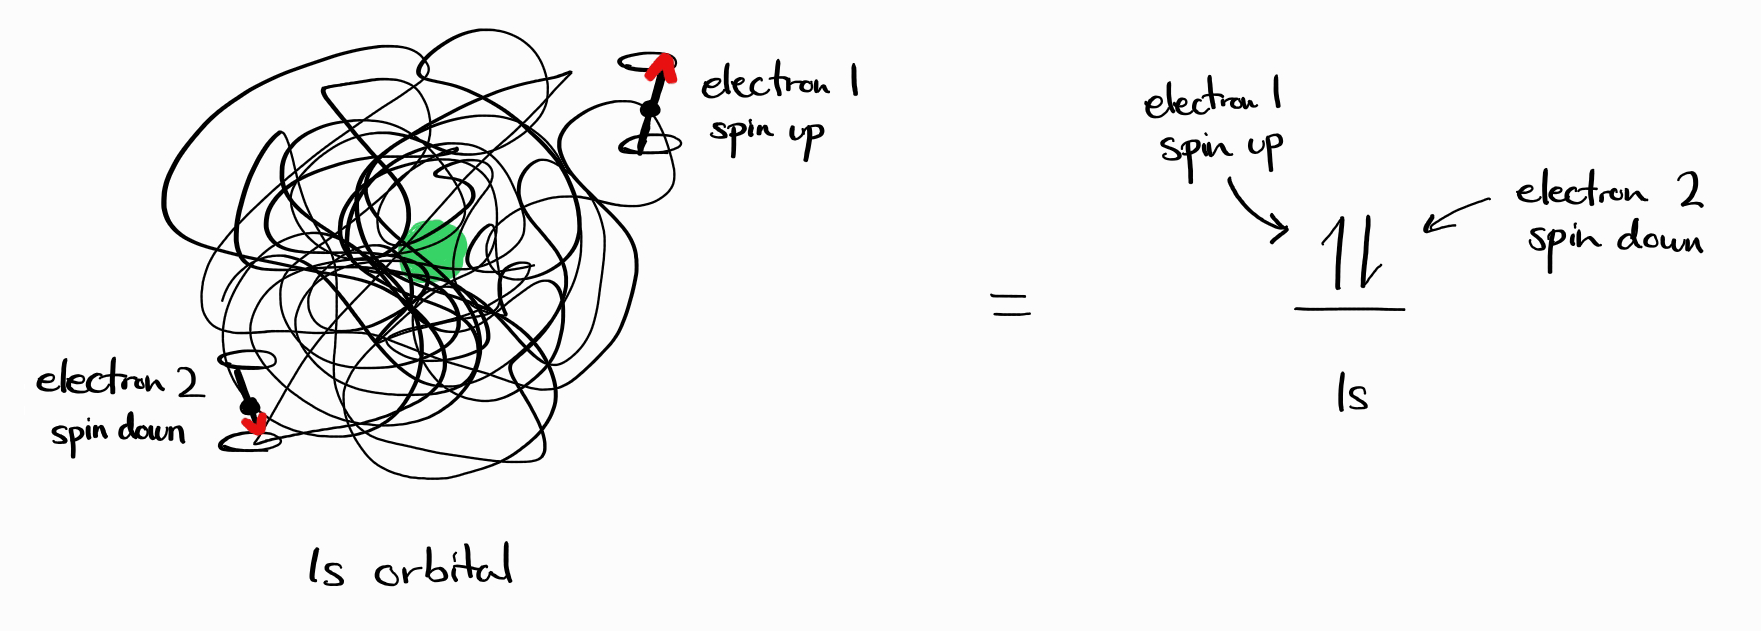 electron 1
spin up
electron 2
spin down
1s orbital
=
electron 1
spin up
electron 2
spin down
1s